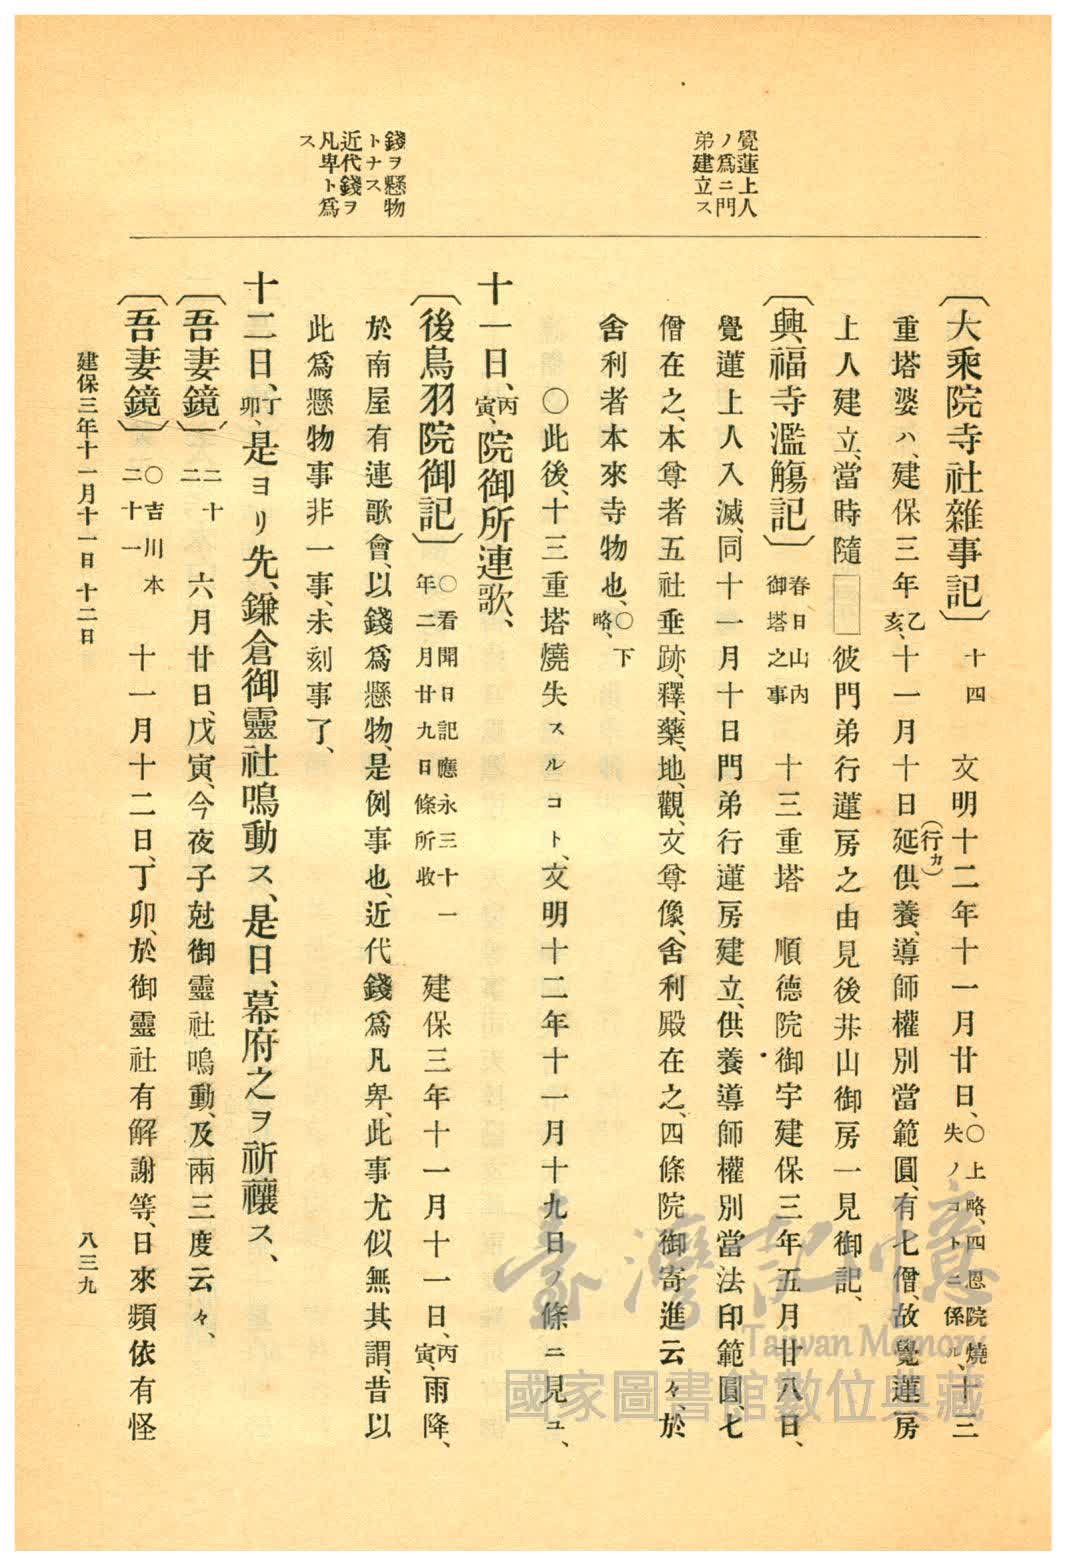 覺蓮上人
ノ爲ニ門
弟建立ス
錢ヲ懸物
トナス
近代錢ヲ
凡卑ト爲
ス
〔大乘院寺社雜事記〕十四 文明十二年十一月廿日、○上略、四恩院燒失ノコトニ係ル、十三
重塔婆ハ、建保三年乙亥、十一月十日延(行カ)供養、導師權別當範圓、有七僧、故覺蓮房
上人建立、當時隨□彼門弟行蓮房之由見後幷山御房一見御記、
〔興福寺濫觴記〕春日山內御塔之事 十三重塔 順德院御宇建保三年五月廿八日、
覺蓮上人入滅、同十一月十日門弟行蓮房建立、供養導師權別當法印範圓、七
僧在之、本尊者五社垂跡、釋、藥、地、觀、文尊像、舍利殿在之、四條院御寄進云々、於
舍利者本來寺物也、○下略、
○此後、十三重塔燒失スルコト、文明十二年十一月十九日ノ條ニ見ユ、
十一日、丙寅、院御所連歌、
〔後鳥羽院御記〕○看聞日記應永三十一年二月廿九日條所收 建保三年十一月十一日、丙寅、雨降、
於南屋有連歌會、以錢爲懸物、是例事也、近代錢爲凡卑、此事尤似無其謂、昔以
此爲懸物事非一事、未刻事了、
十二日、丁卯、是ヨリ先、鎌倉御靈社鳴動ス、是日、幕府之ヲ祈禳ス、
〔吾妻鏡〕二十二 六月廿日、戊寅、今夜子尅御靈社鳴動、及兩三度云々、
〔吾妻鏡〕○吉川本二十一 十一月十二日、丁卯、於御靈社有解謝等、日來頻依有怪
建保三年十一月十一日 十二日
八三九
臺灣記憶
Taiwan Memory
國家圖書館數位典藏